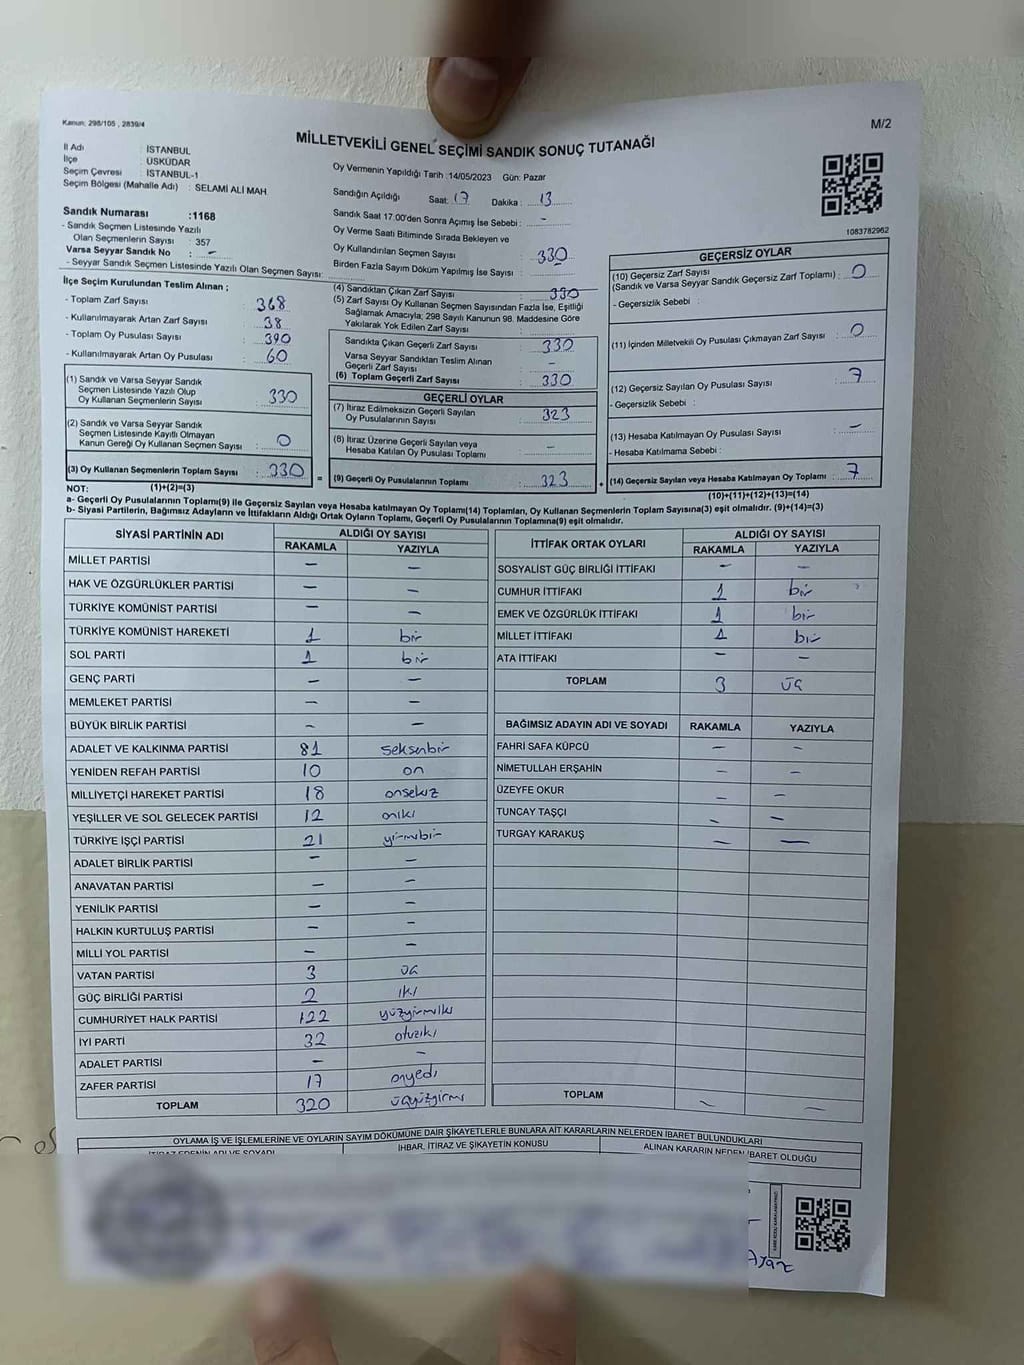 Kanun: 298/105 , 2839/4
M/2
MİLLETVEKİLİ GENEL SEÇİMİ SANDIK SONUÇ TUTANAĞI
İl Adı : İSTANBUL
İlçe : ÜSKÜDAR
Seçim Çevresi : İSTANBUL-1
Seçim Bölgesi (Mahalle Adı) : SELAMİ ALİ MAH.
Sandık Numarası :1168
- Sandık Seçmen Listesinde Yazılı
Olan Seçmenlerin Sayısı : 357
Varsa Seyyar Sandık No : -
- Seyyar Sandık Seçmen Listesinde Yazılı Olan Seçmen Sayısı:
Oy Vermenin Yapıldığı Tarih :14/05/2023 Gün: Pazar
Sandığın Açıldığı Saat: 17 Dakika : 13
Sandık Saat 17.00'den Sonra Açımış İse Sebebi : -
Oy Verme Saati Bitiminde Sırada Bekleyen ve
Oy Kullandırılan Seçmen Sayısı : 330
Birden Fazla Sayım Döküm Yapılmış İse Sayısı :
1083782962
İlçe Seçim Kurulundan Teslim Alınan ;
- Toplam Zarf Sayısı : 368
- Kullanılmayarak Artan Zarf Sayısı : 38
- Toplam Oy Pusulası Sayısı : 390
- Kullanılmayarak Artan Oy Pusulası : 60
(1) Sandık ve Varsa Seyyar Sandık
Seçmen Listesinde Yazılı Olup
Oy Kullanan Seçmenlerin Sayısı : 330
(2) Sandık ve Varsa Seyyar Sandık
Seçmen Listesinde Kayıtlı Olmayan
Kanun Gereği Oy Kullanan Seçmen Sayısı : 0
(3) Oy Kullanan Seçmenlerin Toplam Sayısı : 330
(4) Sandıktan Çıkan Zarf Sayısı : 330
(5) Zarf Sayısı Oy Kullanan Seçmen Sayısından Fazla İse, Eşitliği
Sağlamak Amacıyla, 298 Sayılı Kanunun 98. Maddesine Göre
Yakılarak Yok Edilen Zarf Sayısı :
Sandıkta Çıkan Geçerli Zarf Sayısı : 330
Varsa Seyyar Sandıktan Teslim Alınan
Geçerli Zarf Sayısı : -
(6) Toplam Geçerli Zarf Sayısı : 330
GEÇERLİ OYLAR
(7) İtiraz Edilmeksizin Geçerli Sayılan
Oy Pusulalarının Sayısı : 323
(8) İtiraz Üzerine Geçerli Sayılan veya
Hesaba Katılan Oy Pusulası Toplamı : -
= (9) Geçerli Oy Pusulalarının Toplamı : 323
GEÇERSİZ OYLAR
(10) Geçersiz Zarf Sayısı
(Sandık ve Varsa Seyyar Sandık Geçersiz Zarf Toplamı) : 0
- Geçersizlik Sebebi :
(11) İçinden Milletvekili Oy Pusulası Çıkmayan Zarf Sayısı : 0
(12) Geçersiz Sayılan Oy Pusulası Sayısı : 7
- Geçersizlik Sebebi :
(13) Hesaba Katılmayan Oy Pusulası Sayısı : -
- Hesaba Katılmama Sebebi :
+ (14) Geçersiz Sayılan veya Hesaba Katılmayan Oy Toplamı : 7
NOT: (1)+(2)=(3)
(10)+(11)+(12)+(13)=(14)
a- Geçerli Oy Pusulalarının Toplamı(9) ile Geçersiz Sayılan veya Hesaba katılmayan Oy Toplamı(14) Toplamları, Oy Kullanan Seçmenlerin Toplam Sayısına(3) eşit olmalıdır. (9)+(14)=(3)
b- Siyasi Partilerin, Bağımsız Adayların ve İttifakların Aldığı Ortak Oyların Toplamı, Geçerli Oy Pusulalarının Toplamına(9) eşit olmalıdır.
SİYASİ PARTİNİN ADI ALDIĞI OY SAYISI
RAKAMLA YAZIYLA
MİLLET PARTİSİ - -
HAK VE ÖZGÜRLÜKLER PARTİSİ - -
TÜRKİYE KOMÜNİST PARTİSİ - -
TÜRKİYE KOMÜNİST HAREKETİ 1 bir
SOL PARTİ 1 bir
GENÇ PARTİ - -
MEMLEKET PARTİSİ - -
BÜYÜK BİRLİK PARTİSİ - -
ADALET VE KALKINMA PARTİSİ 81 seksenbir
YENİDEN REFAH PARTİSİ 10 on
MİLLİYETÇİ HAREKET PARTİSİ 18 onsekiz
YEŞİLLER VE SOL GELECEK PARTİSİ 12 oniki
TÜRKİYE İŞÇİ PARTİSİ 21 yirmibir
ADALET BİRLİK PARTİSİ - -
ANAVATAN PARTİSİ - -
YENİLİK PARTİSİ - -
HALKIN KURTULUŞ PARTİSİ - -
MİLLİ YOL PARTİSİ - -
VATAN PARTİSİ 3 üç
GÜÇ BİRLİĞİ PARTİSİ 2 iki
CUMHURİYET HALK PARTİSİ 122 yüzyirmiiki
İYİ PARTİ 32 otuziki
ADALET PARTİSİ - -
ZAFER PARTİSİ 17 onyedi
TOPLAM 320 üçyüzyirmi
İTTİFAK ORTAK OYLARI ALDIĞI OY SAYISI
RAKAMLA YAZIYLA
SOSYALİST GÜÇ BİRLİĞİ İTTİFAKI - -
CUMHUR İTTİFAKI 1 bir
EMEK VE ÖZGÜRLÜK İTTİFAKI 1 bir
MİLLET İTTİFAKI 1 bir
ATA İTTİFAKI - -
TOPLAM 3 üç
BAĞIMSIZ ADAYIN ADI VE SOYADI RAKAMLA YAZIYLA
FAHRİ SAFA KÜPCÜ - -
NİMETULLAH ERŞAHİN - -
ÜZEYFE OKUR - -
TUNCAY TAŞÇI - -
TURGAY KARAKUŞ - -
TOPLAM - -
OYLAMA İŞ VE İŞLEMLERİNE VE OYLARIN SAYIM DÖKÜMÜNE DAİR ŞİKAYETLERLE BUNLARA AİT KARARLARIN NELERDEN İBARET BULUNDUKLARI
İTİRAZ EDENİN ADI VE SOYADI İHBAR, İTİRAZ VE ŞİKAYETİN KONUSU ALINAN KARARIN NEDEN İBARET OLDUĞU